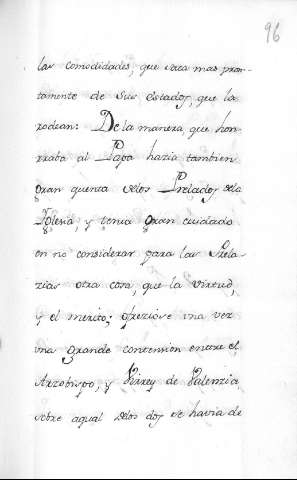 96
las comodidades, que saca mas pron-
tamente de sus estados, que la
rodean: De la manera, que hon-
rraba al Papa hazia tambien
gran quenta delos Prelados dela
Iglesia, y tenia gran cuidado
en no considerar para las Prela-
zias otra cosa, que la virtud,
y el merito; ofreziose una vez
una grande contension entre el
Arzobispo, y Virrey de Valenzia
sobre aqual delos dos se havia de